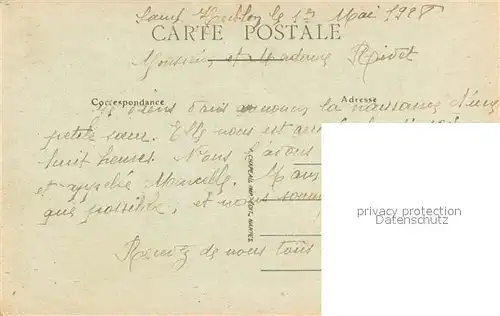 Saint Herblon le 1er Mai 1928
CARTE POSTALE
Monsieur et Madame Rivet
Correspondance
Adresse
Je viens vous annoncer la naissance d'une
petite sœur. Elle nous est
huit heures. Nous l'avons
et appelée Marcelle.
que possible, et nous sommes
Recevez de nous tous
F. CHAPEAU, IMP.-EDIT., NANTES
privacy protection
Datenschutz
www.oldthing.de